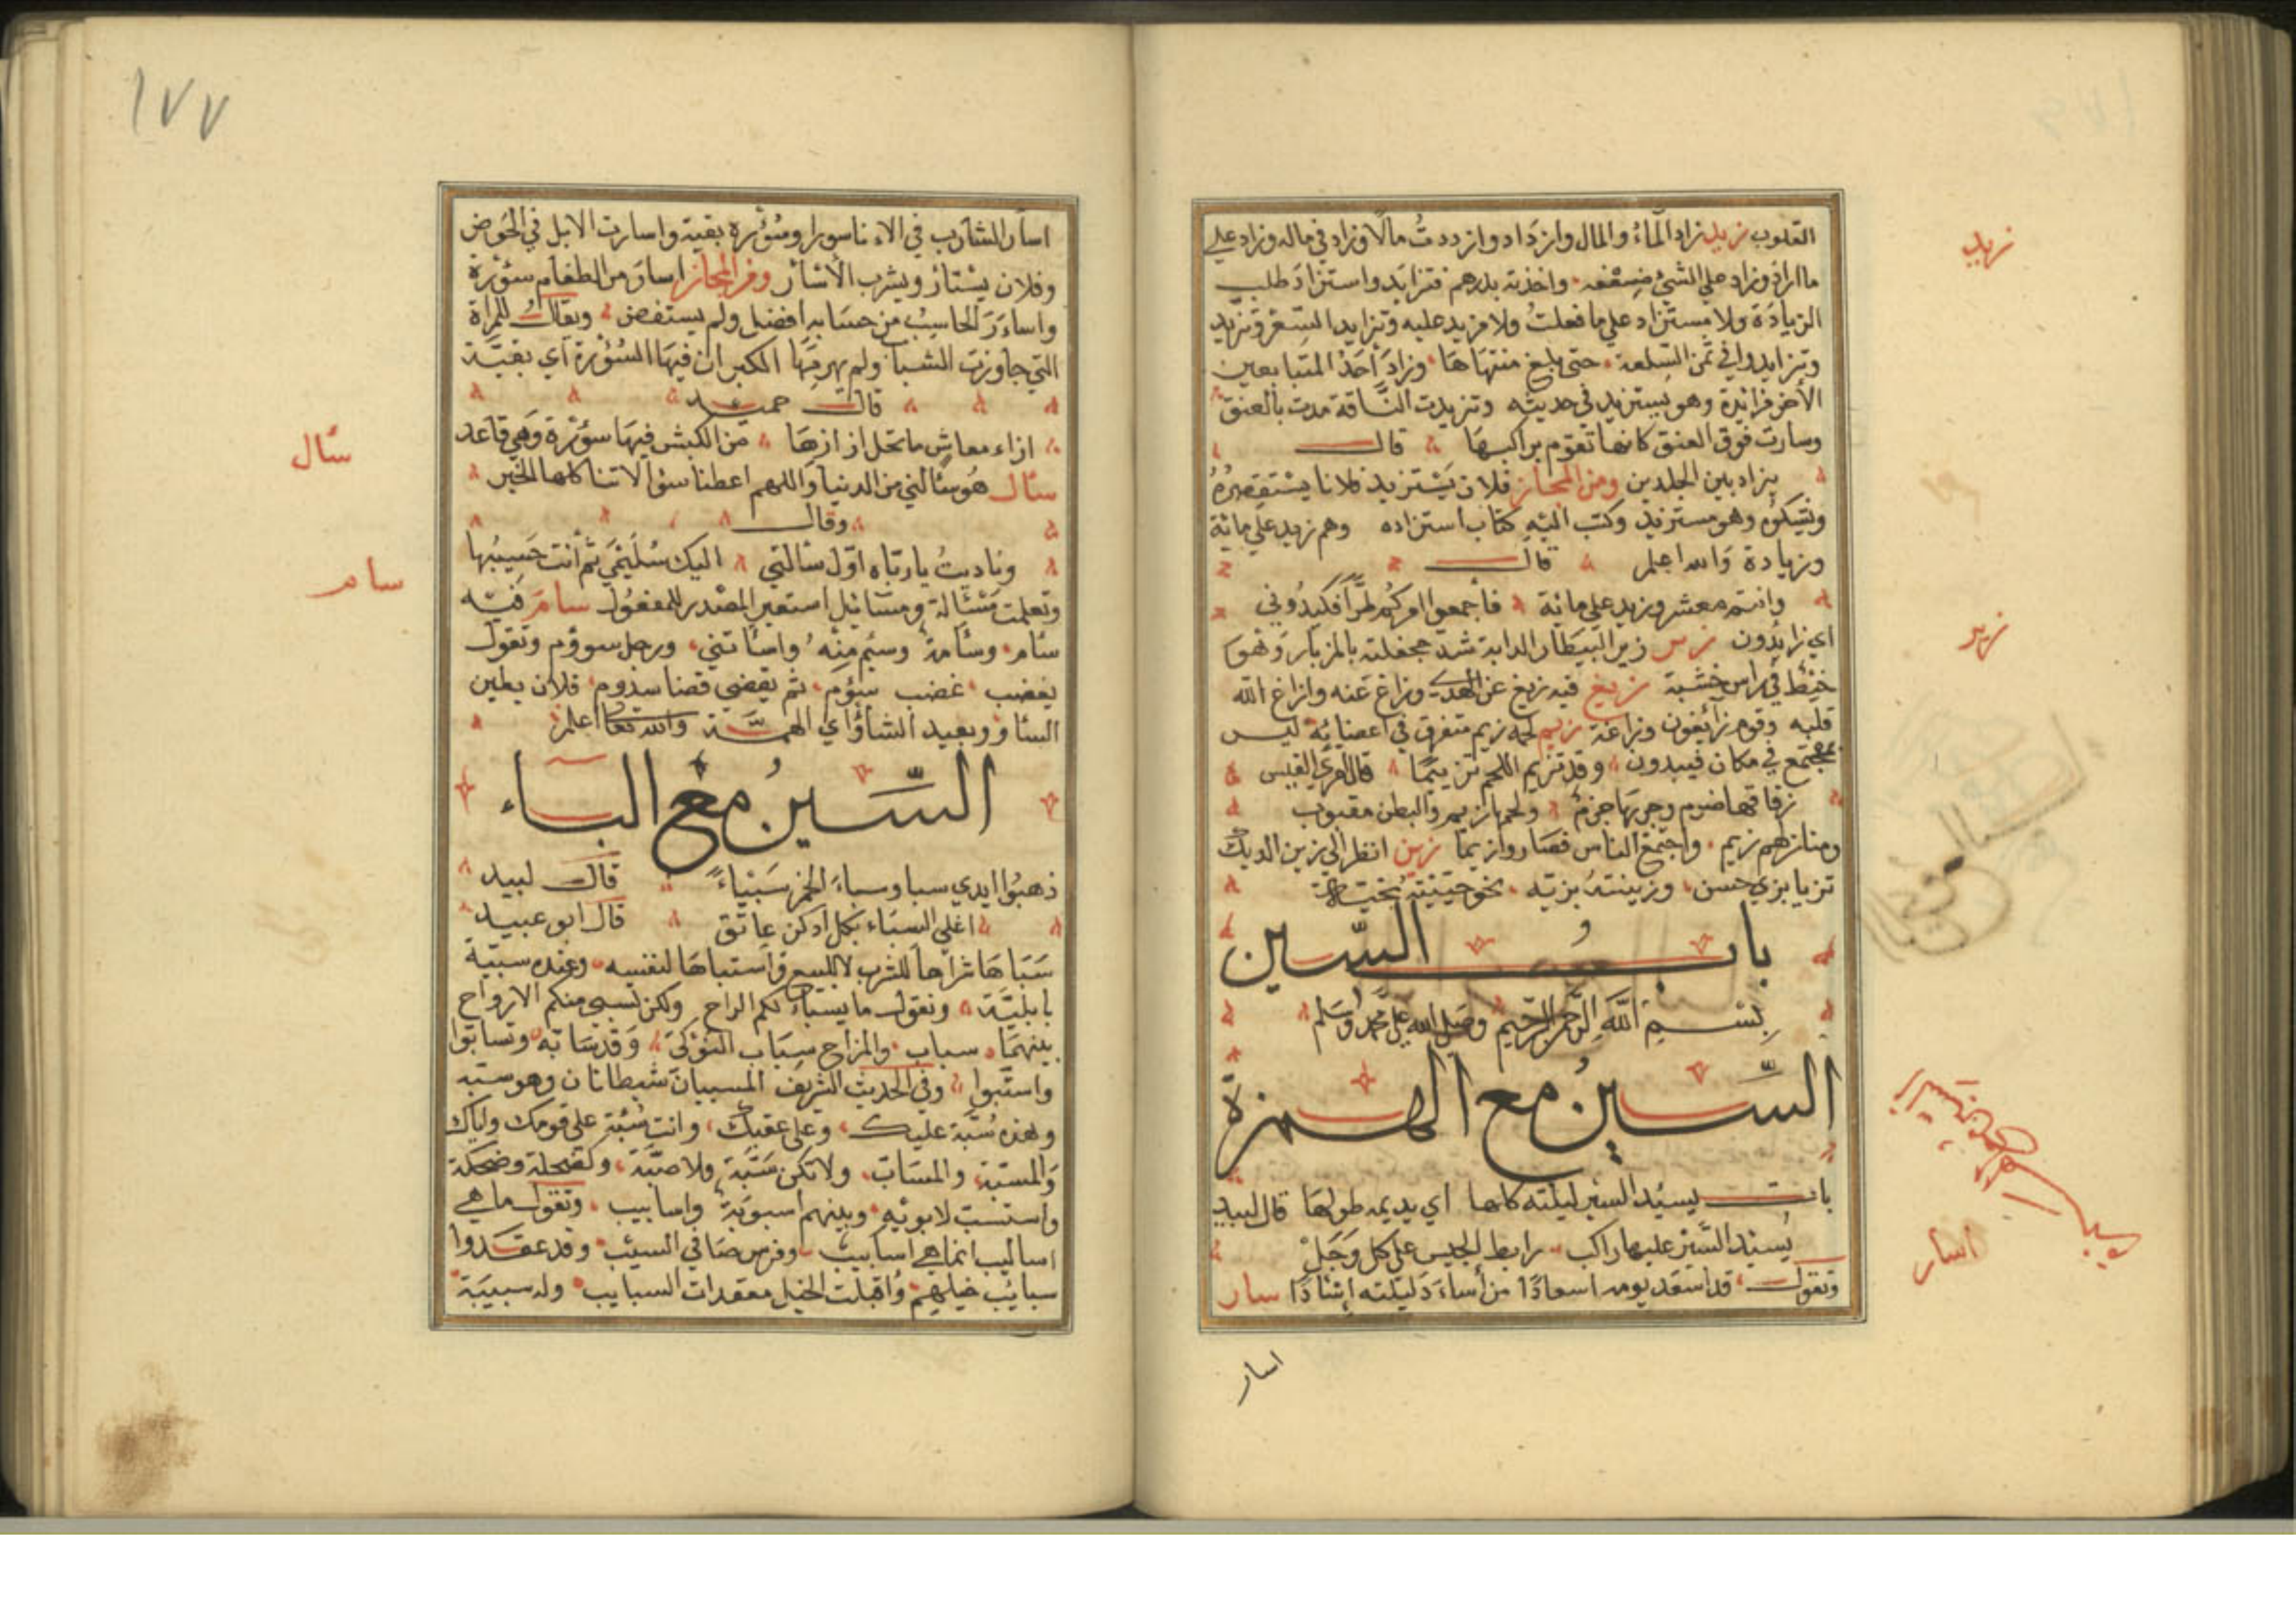 القلوب زيد زاد الماءُ والمال وازداد وازددتُ مالًا وزاد في ماله وزاد على
ما اراد وزاد على الشئ ضعفه واخذته بدرهم فتزايد واستزاد طلب
الزيادة ولا مستزاد على ما فعلتُ ولا مزيد عليه وتزايد السعر وتزيّد
وتزايدوا في ثمن السلعة حتى بلغ منتهاها وزاد أحدُ المتبايعين
الأخر فزايدة وهو يستزيد في حديثه وتزيدت الناقة مدت بالعنق
وسارت فوق العنق كانها تقوم براكبها قال
يزاد بين الجلدين ومن المجاز فلان يَسْتزيد فلانا يستقصرُهُ
ويشكوُه وهو مستزيد وكتب اليه كتاب استزاده وهم زيد على مائة
وزيادة والله اعلم قال
وانتم معشر وزيد على مائة فأجمعوا امركم طرًّا فكيدُوني
اي زايدون زير زير البيطار الدابة شد جحفلته بالزيار وَهو
خيْط في راس خشبة زيغ فيه زيغ عن الهدى وزاغ عنه وازاغ الله
قلبه وقوم زايغون وزاغة زيم لحمه زيم متفرق في اعضائه ليس
بمجتمع في مكان فيبدون وقد تزيم اللحم تزيمًا قال امرئ القيس
رقاقها ضرم وجريها جزمٌ ولحمها زيم والبطن مقبوب
ومنازلهم زيم واجتمع الناس فصاروا زيما زين انظر الى زين الديك
تزيا بزي حسن وزينته بزيه نحو حيّيته بتحيته
بابُ السّين
بسم الله الرحمن الرحيم وصلى الله على محمد وسلم
السّينُ مع الهمزة
بات يسئد السير ليلته كلها اي يديمه طولها قال لبيد
يُسئد السَّير عليها راكب رابط الجيس على كل وَجَلْ
وتقول قد اسعَد يومه اسعادًا من أساءَدَ ليلته إِسْآدًا سار
اسار
زيد
زير
اسار
١٧٧
اسأر الشارب في الاناء سورا وسُؤْرة بقية واسارت الابل في الحَوض
وفلان يسْتأر ويشرب الأسْآر ومن المجاز اسارَ من الطعام سؤرة
واساءَرَ الحاسِبُ من حسَابه افضل ولم يستقص ويقالُ للمرأة
التي جاوزت الشباب ولم يهرمها الكبر ان فيهَا السُؤْرة اي بقيّة
قال حميد
ازاء معاش ما تحل ازارهَا من الكبش فيهَا سؤرة وَهي قاعد
سأل هُوَ سألني من الدنيا واللهم اعطنا سؤالاتنا كلها الخير
وقال
وناديتُ يا رباه اوّل سألتي اليك سُلَيْمَى ثم أنت حَسيبُها
وتعلمت مَسْئالة ومسَائل استعير المصْدر للمفعُول سام فيه
سَأم وسآمةٌ وسئم منْه واسأمَتني ورجل سؤوم وتقول
يغضب غضب سؤُم ثم يقضي قضا سدوم فلان بطين
السأو وبعيد الشأو اي الهمة والله تعا اعلم
السَّينُ مع البَاء
ذهبُوا ايدي سبا وسباءَ الخمر سَبْيَاءً قال لبيد
اغلي السبَاء بكل ادكن عاتق قال ابو عبيد
سَبَاهَا شراهَا للشرب لا للبيع واستباهَا لنفسه وعنده سبيّة
بابليّة وتقول ما يسبَاء لكم الراح ولكن تسبى منكم الارواح
بينهمَا سباب والمزاح سِبَاب النوْكَى وَقد سَابّه وتسابّوا
واستّبوا وفي الحديث الشريف المسبيان شيطانان وهو سبّه
وهذه سُبّة عليك وعلى عقبك وانت سُبّة على قومك واياك
وَالمسّبة والمسَابّ ولا تكن سَبّة ولا صبّة وكضحلة وضحكة
واستسبّ لابويه وبينهم اسبوبَة واسابيب وتقول ما هي
اساليب انما هي اسابيب وفرس ضافي السبب وقد عقدوا
سبائب خيلهم وَاقبلت الخيل معقدات السبايب وله سبيبَة
سأل
سام